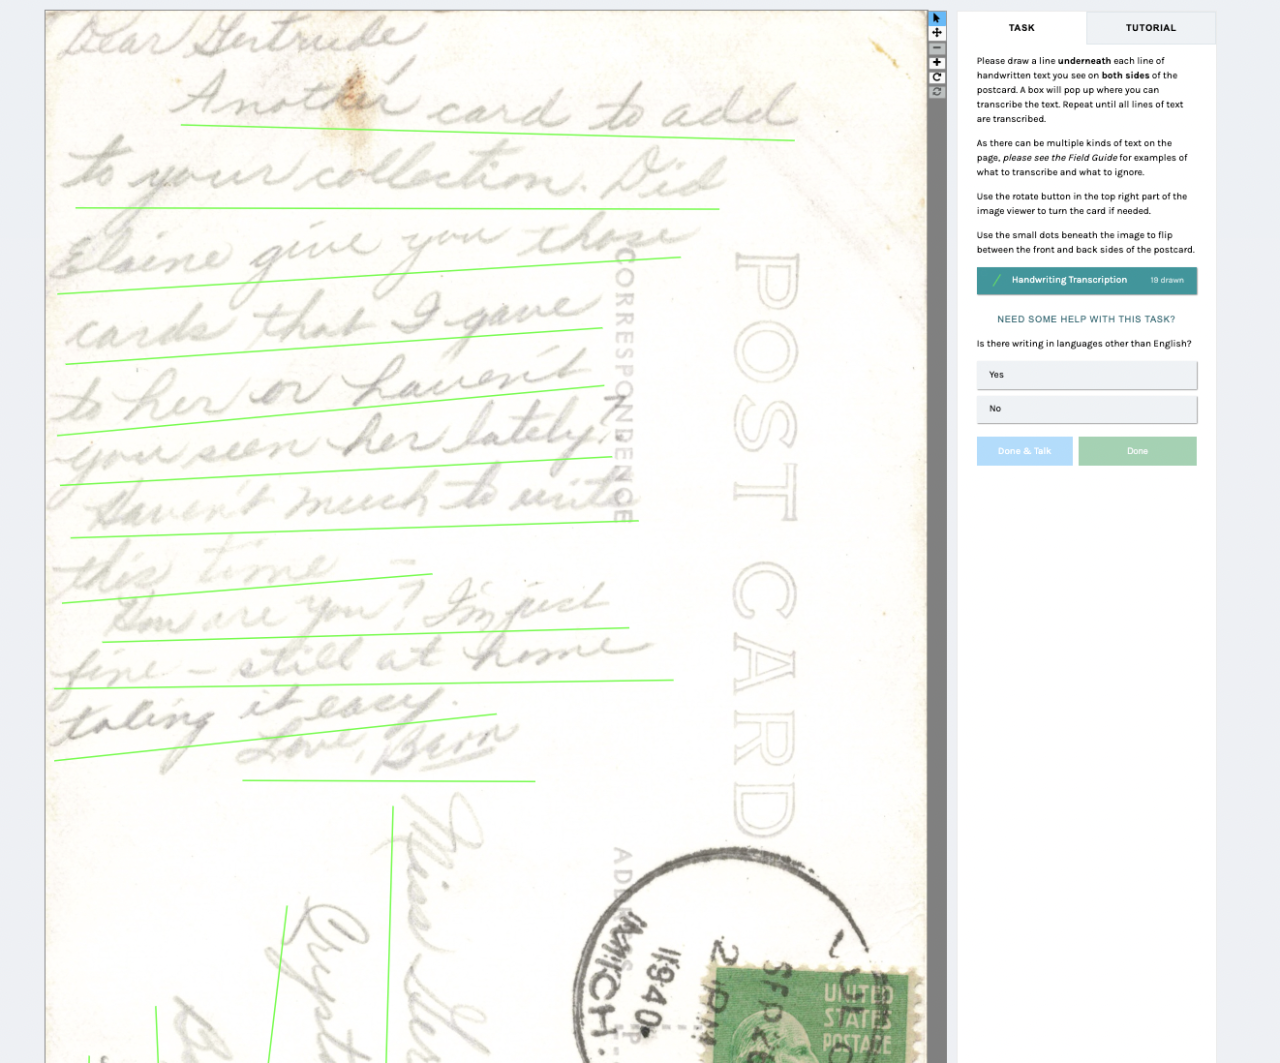 Dear Gertrude
Another card to add
to your collection. Did
Elaine give you those
cards that I gave
to her or haven't
you seen her lately?
Haven't much to write
this time –
How are you? I'm just
fine – still at home
taking it easy.
Love, Bern
Miss
CORRESPONDENCE
POST CARD
MICH.
1940
2 PM
SEP
UNITED
STATES
POSTAGE
TASK
TUTORIAL
Please draw a line underneath each line of
handwritten text you see on both sides of the
postcard. A box will pop up where you can
transcribe the text. Repeat until all lines of text
are transcribed.
As there can be multiple kinds of text on the
page, please see the Field Guide for examples of
what to transcribe and what to ignore.
Use the rotate button in the top right part of the
image viewer to turn the card if needed.
Use the small dots beneath the image to flip
between the front and back sides of the postcard.
Handwriting Transcription 19 drawn
NEED SOME HELP WITH THIS TASK?
Is there writing in languages other than English?
Yes
No
Done & Talk Done